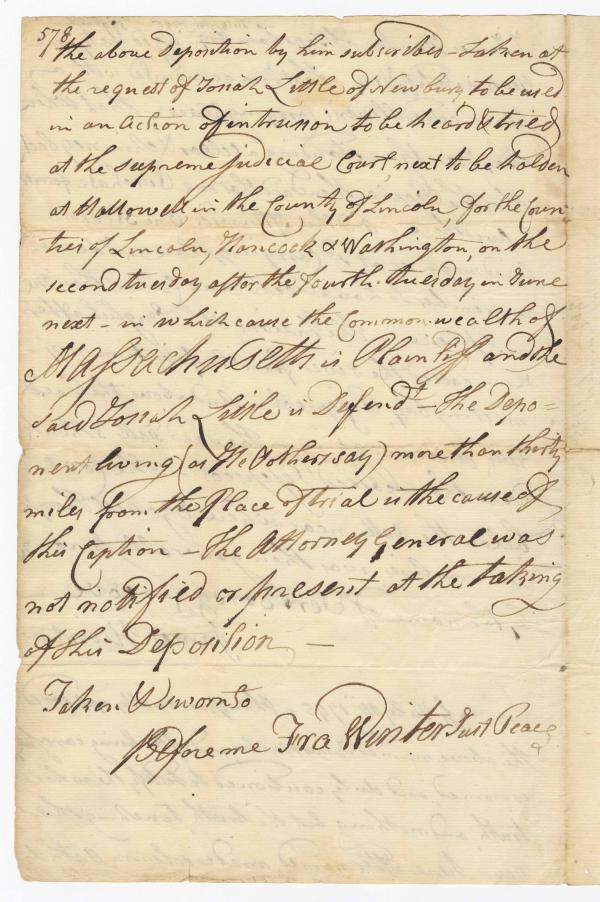 578
the above deposition by him subscribed - taken at
the request of Josiah Little of Newbury to be used
in an action of intrusion to be heard & tried
at the supreme Judicial Court, next to be holden
at Hallowell, in the County of Lincoln, for the Coun-
ties of Lincoln, Hancock & Washington, on the
second tuesday after the fourth tuesday in June
next - in which cause the Common-wealth of
Massachusetts is Plaintiff and the
said Josiah Little is Defendt - the Depo=
nent living (as He & others say) more than thirty
miles from the Place of trial is the cause of
this Caption - the Attorney General was
not notified or present at the taking
of this Deposition -
Taken & sworn to
Before me Fra Winter Just Peace